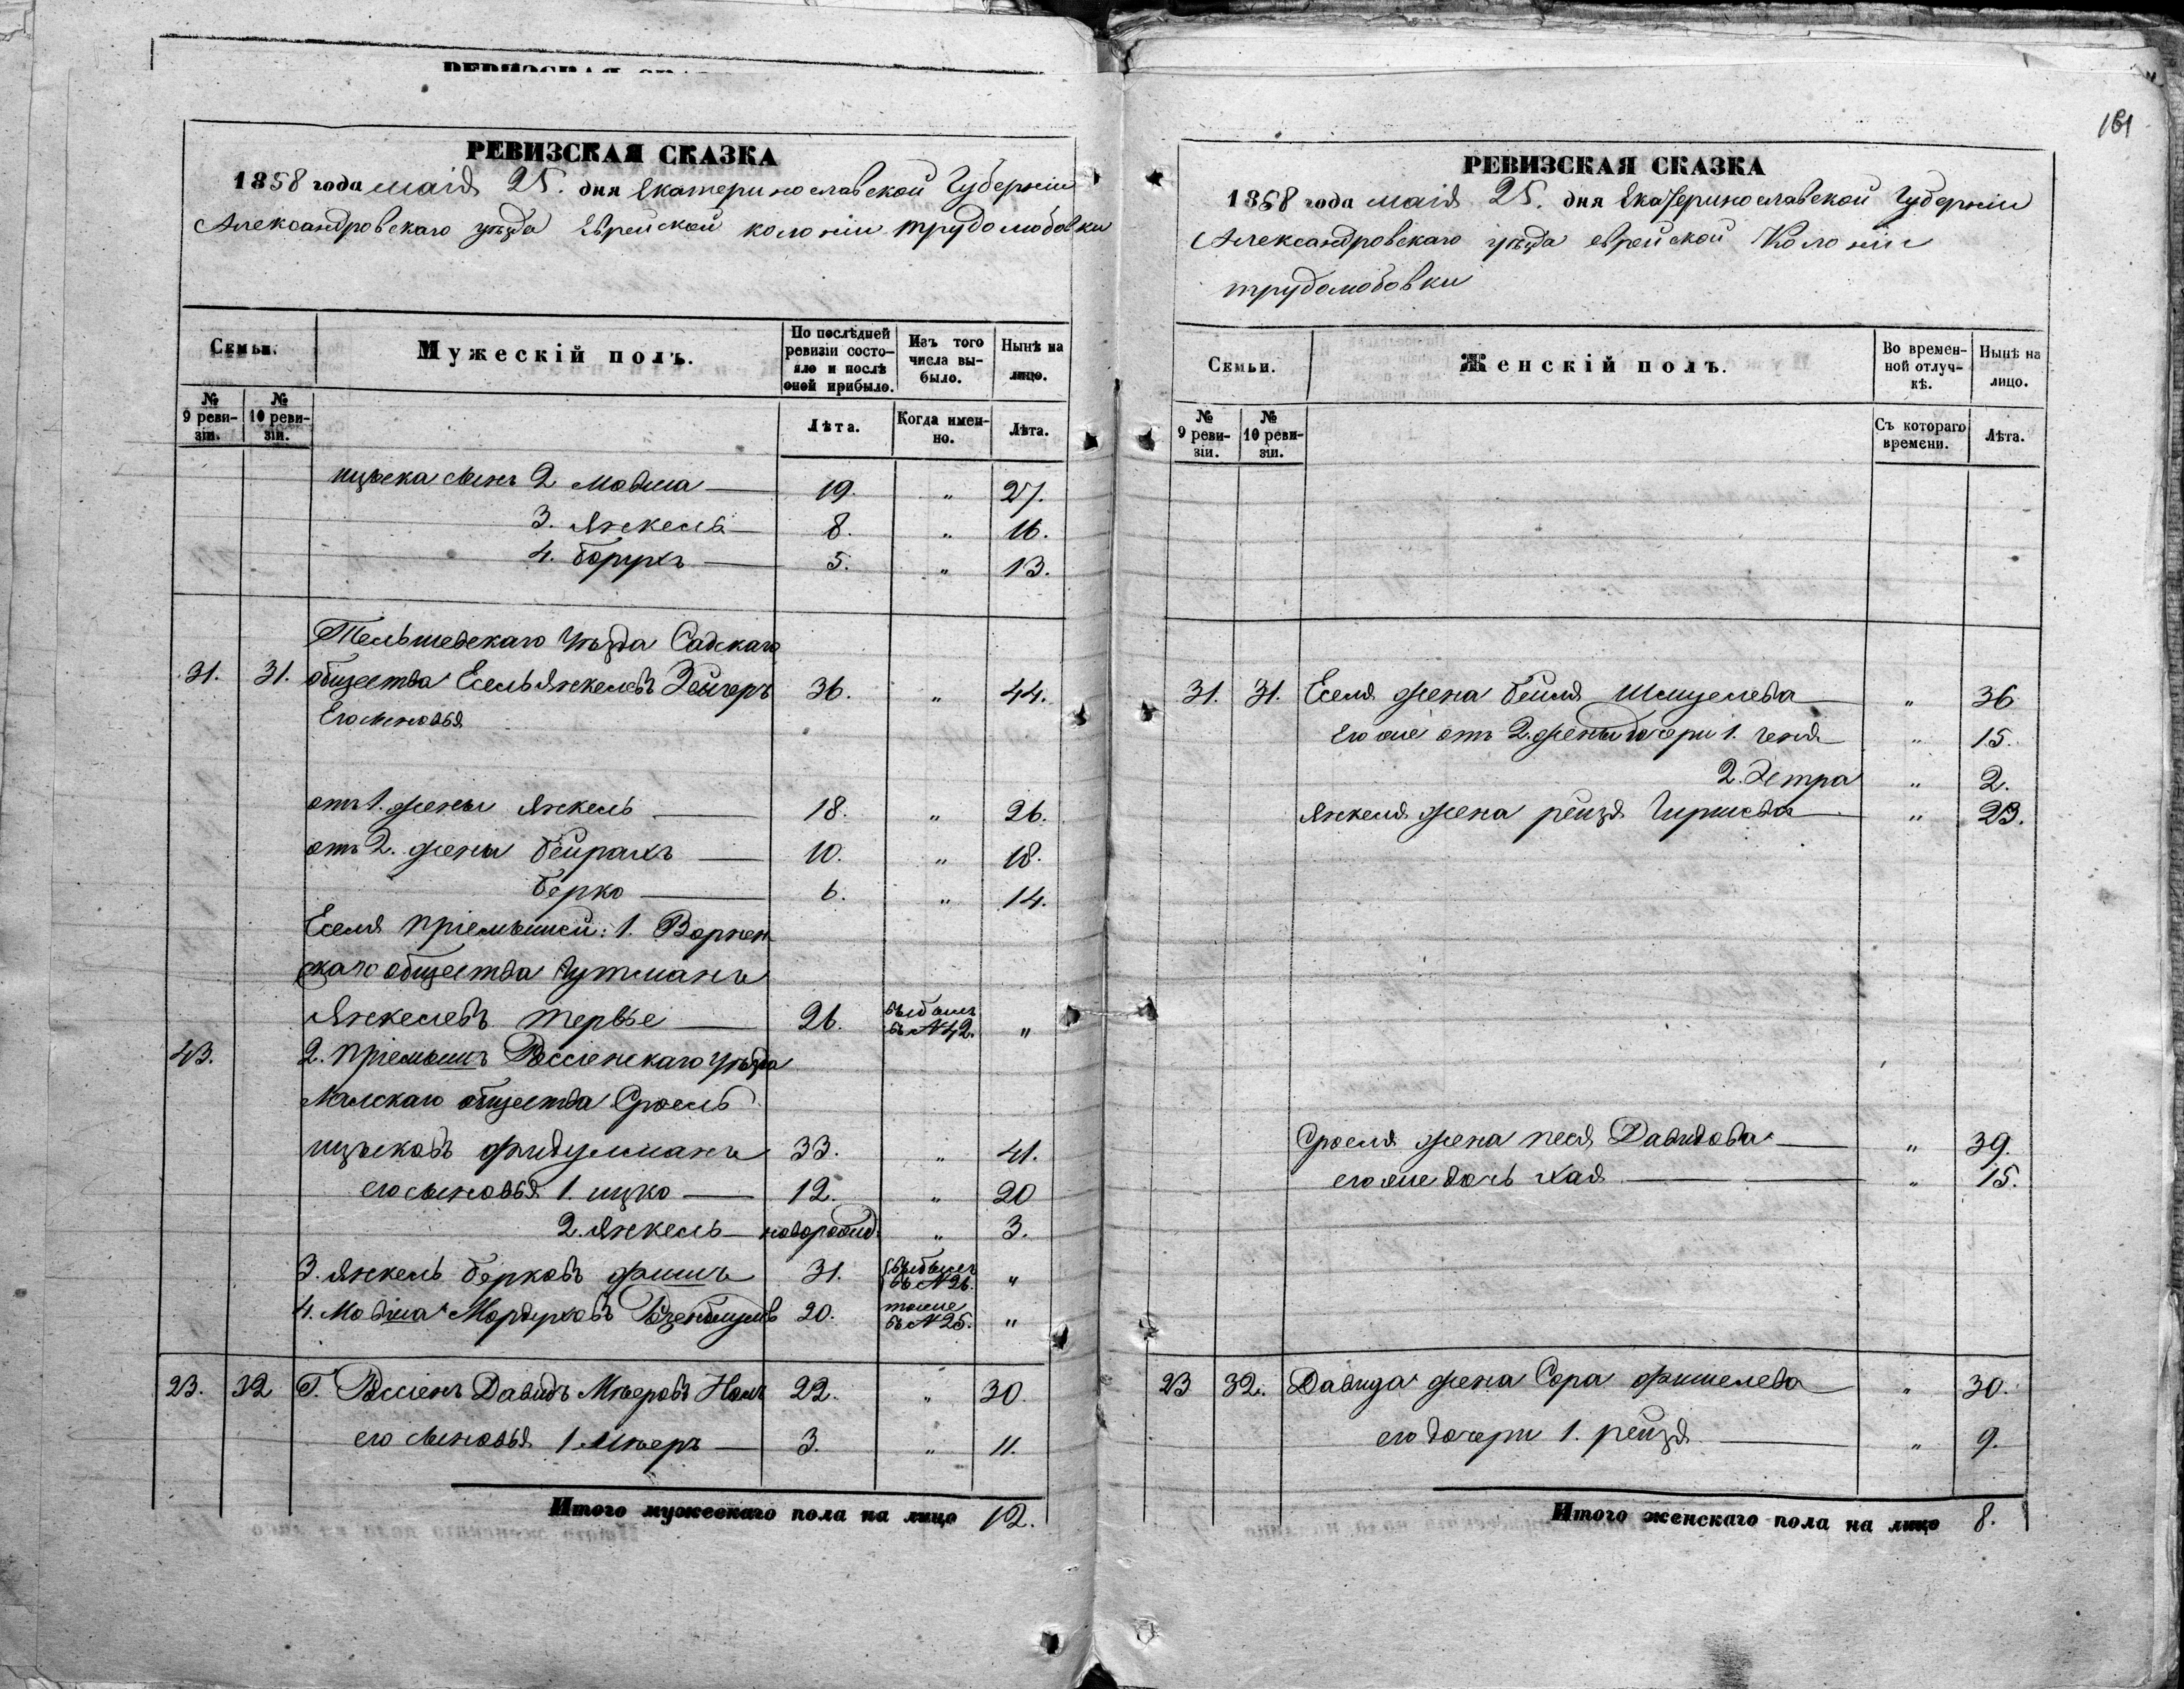 161
РЕВИЗСКАЯ СКАЗКА
1858 года маія 25. дня Екатеринославской Губерніи
Александровскаго уѣзда Еврейской колоніи трудолюбовки
Семьи.
Мужескій полъ.
По послѣдней ревизіи состояло и послѣ оной прибыло.
Изъ того числа выбыло.
Нынѣ на лицо.
№ 9 ревизіи.
№ 10 ревизіи.
Лѣта.
Когда именно.
Лѣта.
ицьека сынъ 2 Мовша 19. " 27.
3. Янкель 8. " 16.
4. Борухъ 5. " 13.
Тельшевскаго Уѣзда Садскаго
31. 31. общества Есель Янкелевъ 36. " 44.
Его сыновья
отъ 1. жены Янкель 18. " 26.
отъ 2. жены Бейрахъ 10. " 18.
Берко 6. " 14.
Еселя пріемыши: 1. Ворнен
скаго общества Гутманъ
Янкелевъ Тервье 26. выбылъ въ № 42. "
43. 2. Пріемышъ Россіенскаго уѣзда
общества Сроель
ицьковъ Фидульманъ 33. " 41.
его сыновья 1. ицко 12. " 20
2. Янкель новорожд. " 3.
3. Янкель Берковъ Фишъ 31. выбылъ въ № 26. "
4. Мовша Мордуховъ 20. тоже въ № 25. "
23. 32 Г. Россіенъ Давидъ Мѣеровъ 22. " 30.
его сыновья 1. Мѣеръ 3. " 11.
Итого мужескаго пола на лицо 12.
РЕВИЗСКАЯ СКАЗКА
1858 года маія 25. дня Екатеринославской Губерніи
Александровскаго уѣзда еврейской Колоніи
трудолюбовки
Семьи.
Женскій полъ.
Во временной отлучкѣ.
Нынѣ на лицо.
№ 9 ревизіи.
№ 10 ревизіи.
Съ котораго времени.
Лѣта.
31. 31. Еселя жена Бейля Шмуелева " 36
Его же отъ 2. жены дочери 1. Геня " 15.
2. Эстра " 2.
Янкеля жена рейзя Гиршова " 23.
Сроеля жена песя Давидова " 39.
его же дочь хая " 15.
23 32. Давида жена Сора Фишелева " 30.
его дочери 1. рейзя " 9.
Итого женскаго пола на лицо 8.